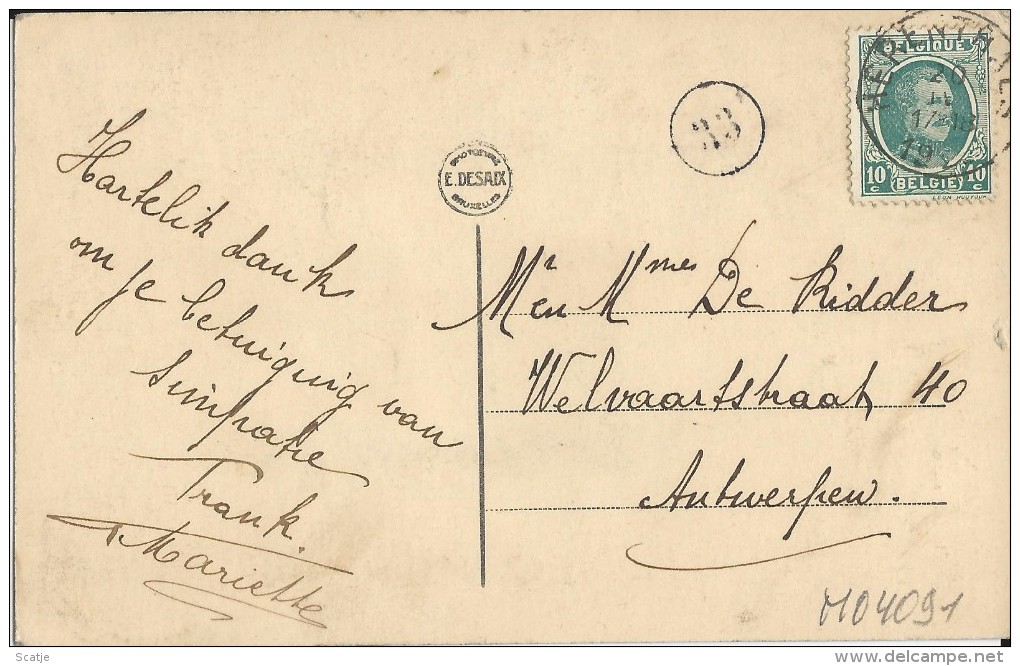 Hartelik dank
om je betuiging van
simpatie
Frank.
Mariette
PHOTOTYPIE
E. DESAIX
BRUXELLES
33
BELGIQUE
HERENTHALS
20
17-18
19
10 c BELGIË 10 c
Mr en Mmes De Ridder
Welvaartstraat, 40
Antwerpen.
M04091
Scatje
www.delcampe.net